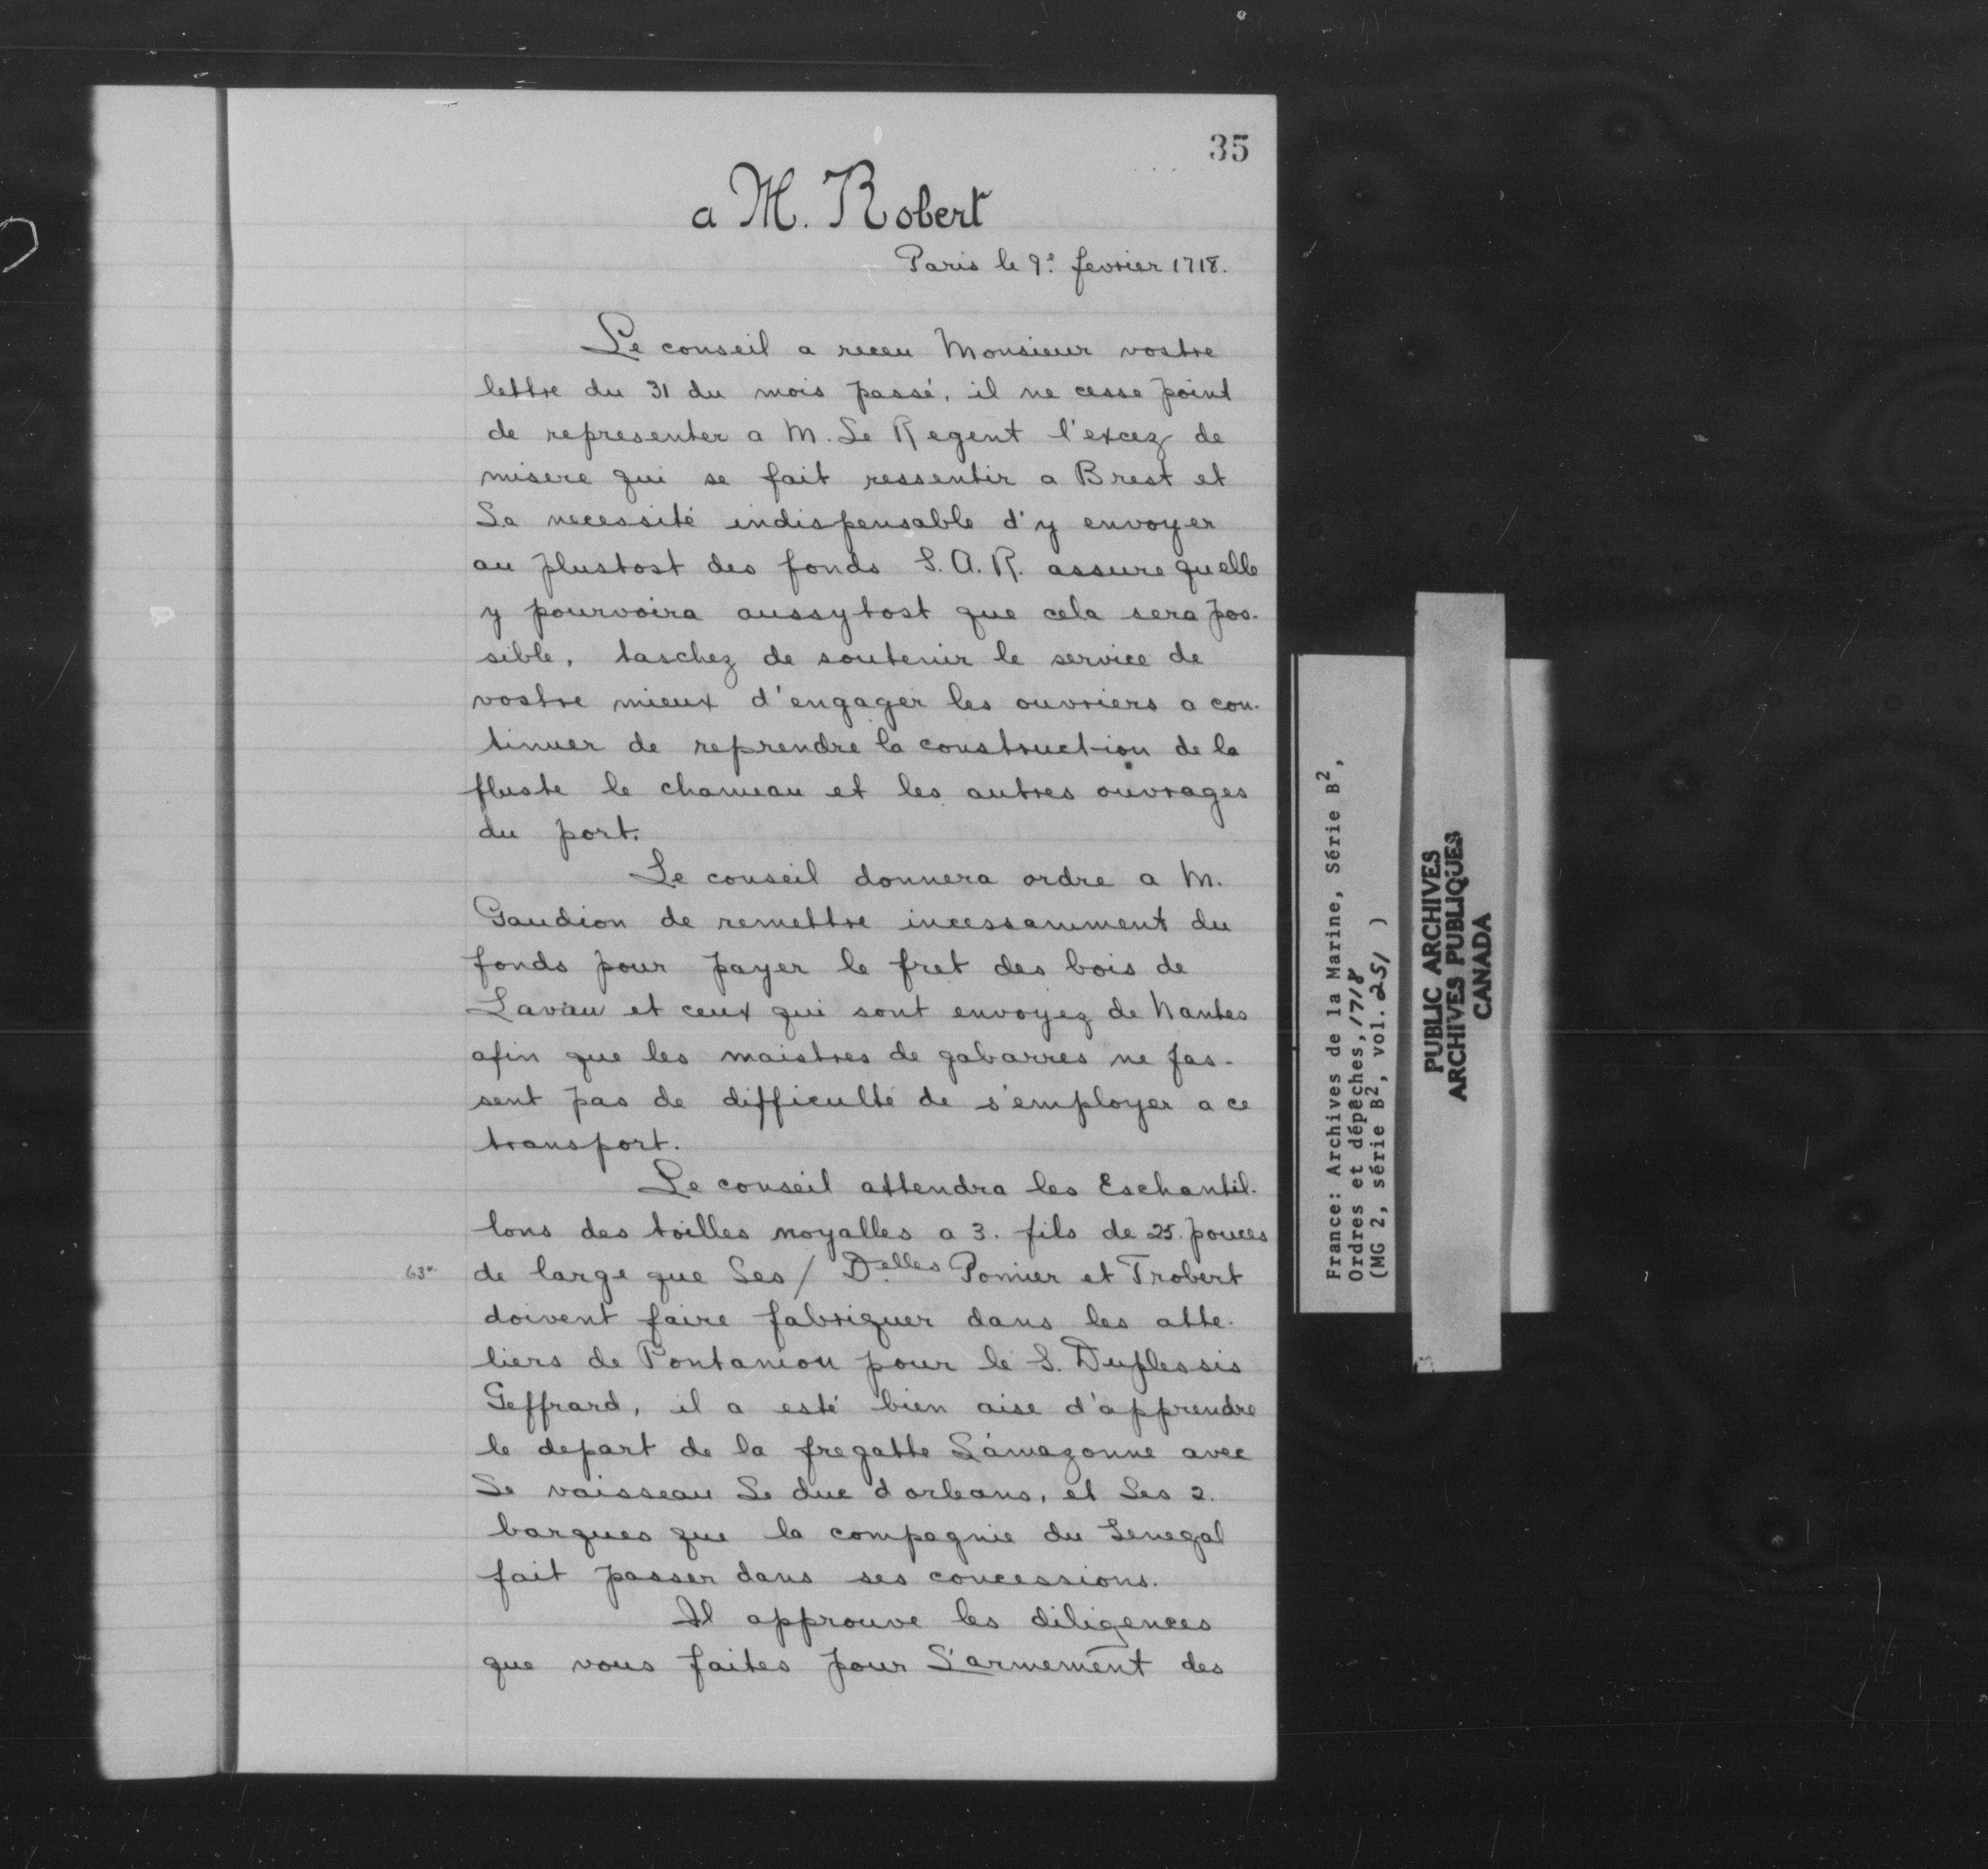 35
a M. Robert
Paris le 9e fevrier 1718.
Le conseil a receu Monsieur vostre
lettre du 31 du mois passé, il ne cesse point
de representer a M. Le Regent l'excez de
misere qui se fait ressentir a Brest et
La necessité indispensable d'y envoyer
au plustost des fonds S. A. R. assure quelle
y pourvoira aussytost que cela sera pos-
sible, taschez de soutenir le service de
vostre mieux d'engager les ouvriers a con-
tinuer de reprendre la construction de la
fluste le chameau et les autres ouvrages
du port.
Le conseil donnera ordre a M.
Gaudion de remettre incessamment du
fonds pour payer le fret des bois de
Lavau et ceux qui sont envoyez de Nantes
afin que les maistres de gabarres ne fas-
sent pas de difficulté de s'employer a ce
transport.
Le conseil attendra les Eschantil-
lons des toilles noyalles a 3. fils de 25. pouces
63vo de large que Les / Delles Pomier et Trobert
doivent faire fabriquer dans les atte-
liers de Pontaniou pour le S. Duplessis
Geffrard, il a esté bien aise d'apprendre
le depart de la fregatte L'amazonne avec
Le vaisseau Le duc d'orleans, et Les 2.
barques que la compagnie du Senegal
fait passer dans ses concessions.
Il approuve les diligences
que vous faites pour L'armement des
France: Archives de la Marine, Série B2,
Ordres et dépêches, 1718
(MG 2, série B2, vol. 251 )
PUBLIC ARCHIVES
ARCHIVES PUBLIQUES
CANADA